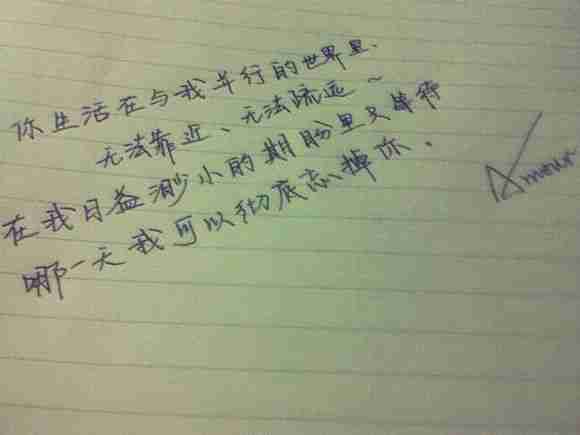 你生活在与我平行的世界里.
无法靠近、无法疏远~
在我日益渺小的期盼里又等待
哪一天我可以彻底忘掉你.
Amour